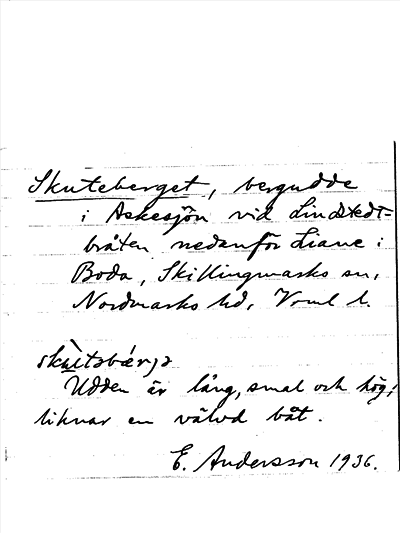 Skuteberget, bergudde
i Askesjön vid Lindstedt-
bråten nedanför Liane i
Boda, Skillingmarks sn,
Nordmarks hd, Vrml l.
skùtəbærjə
Udden är lång, smal och hög;
liknar en välvd båt.
E. Andersson 1936.